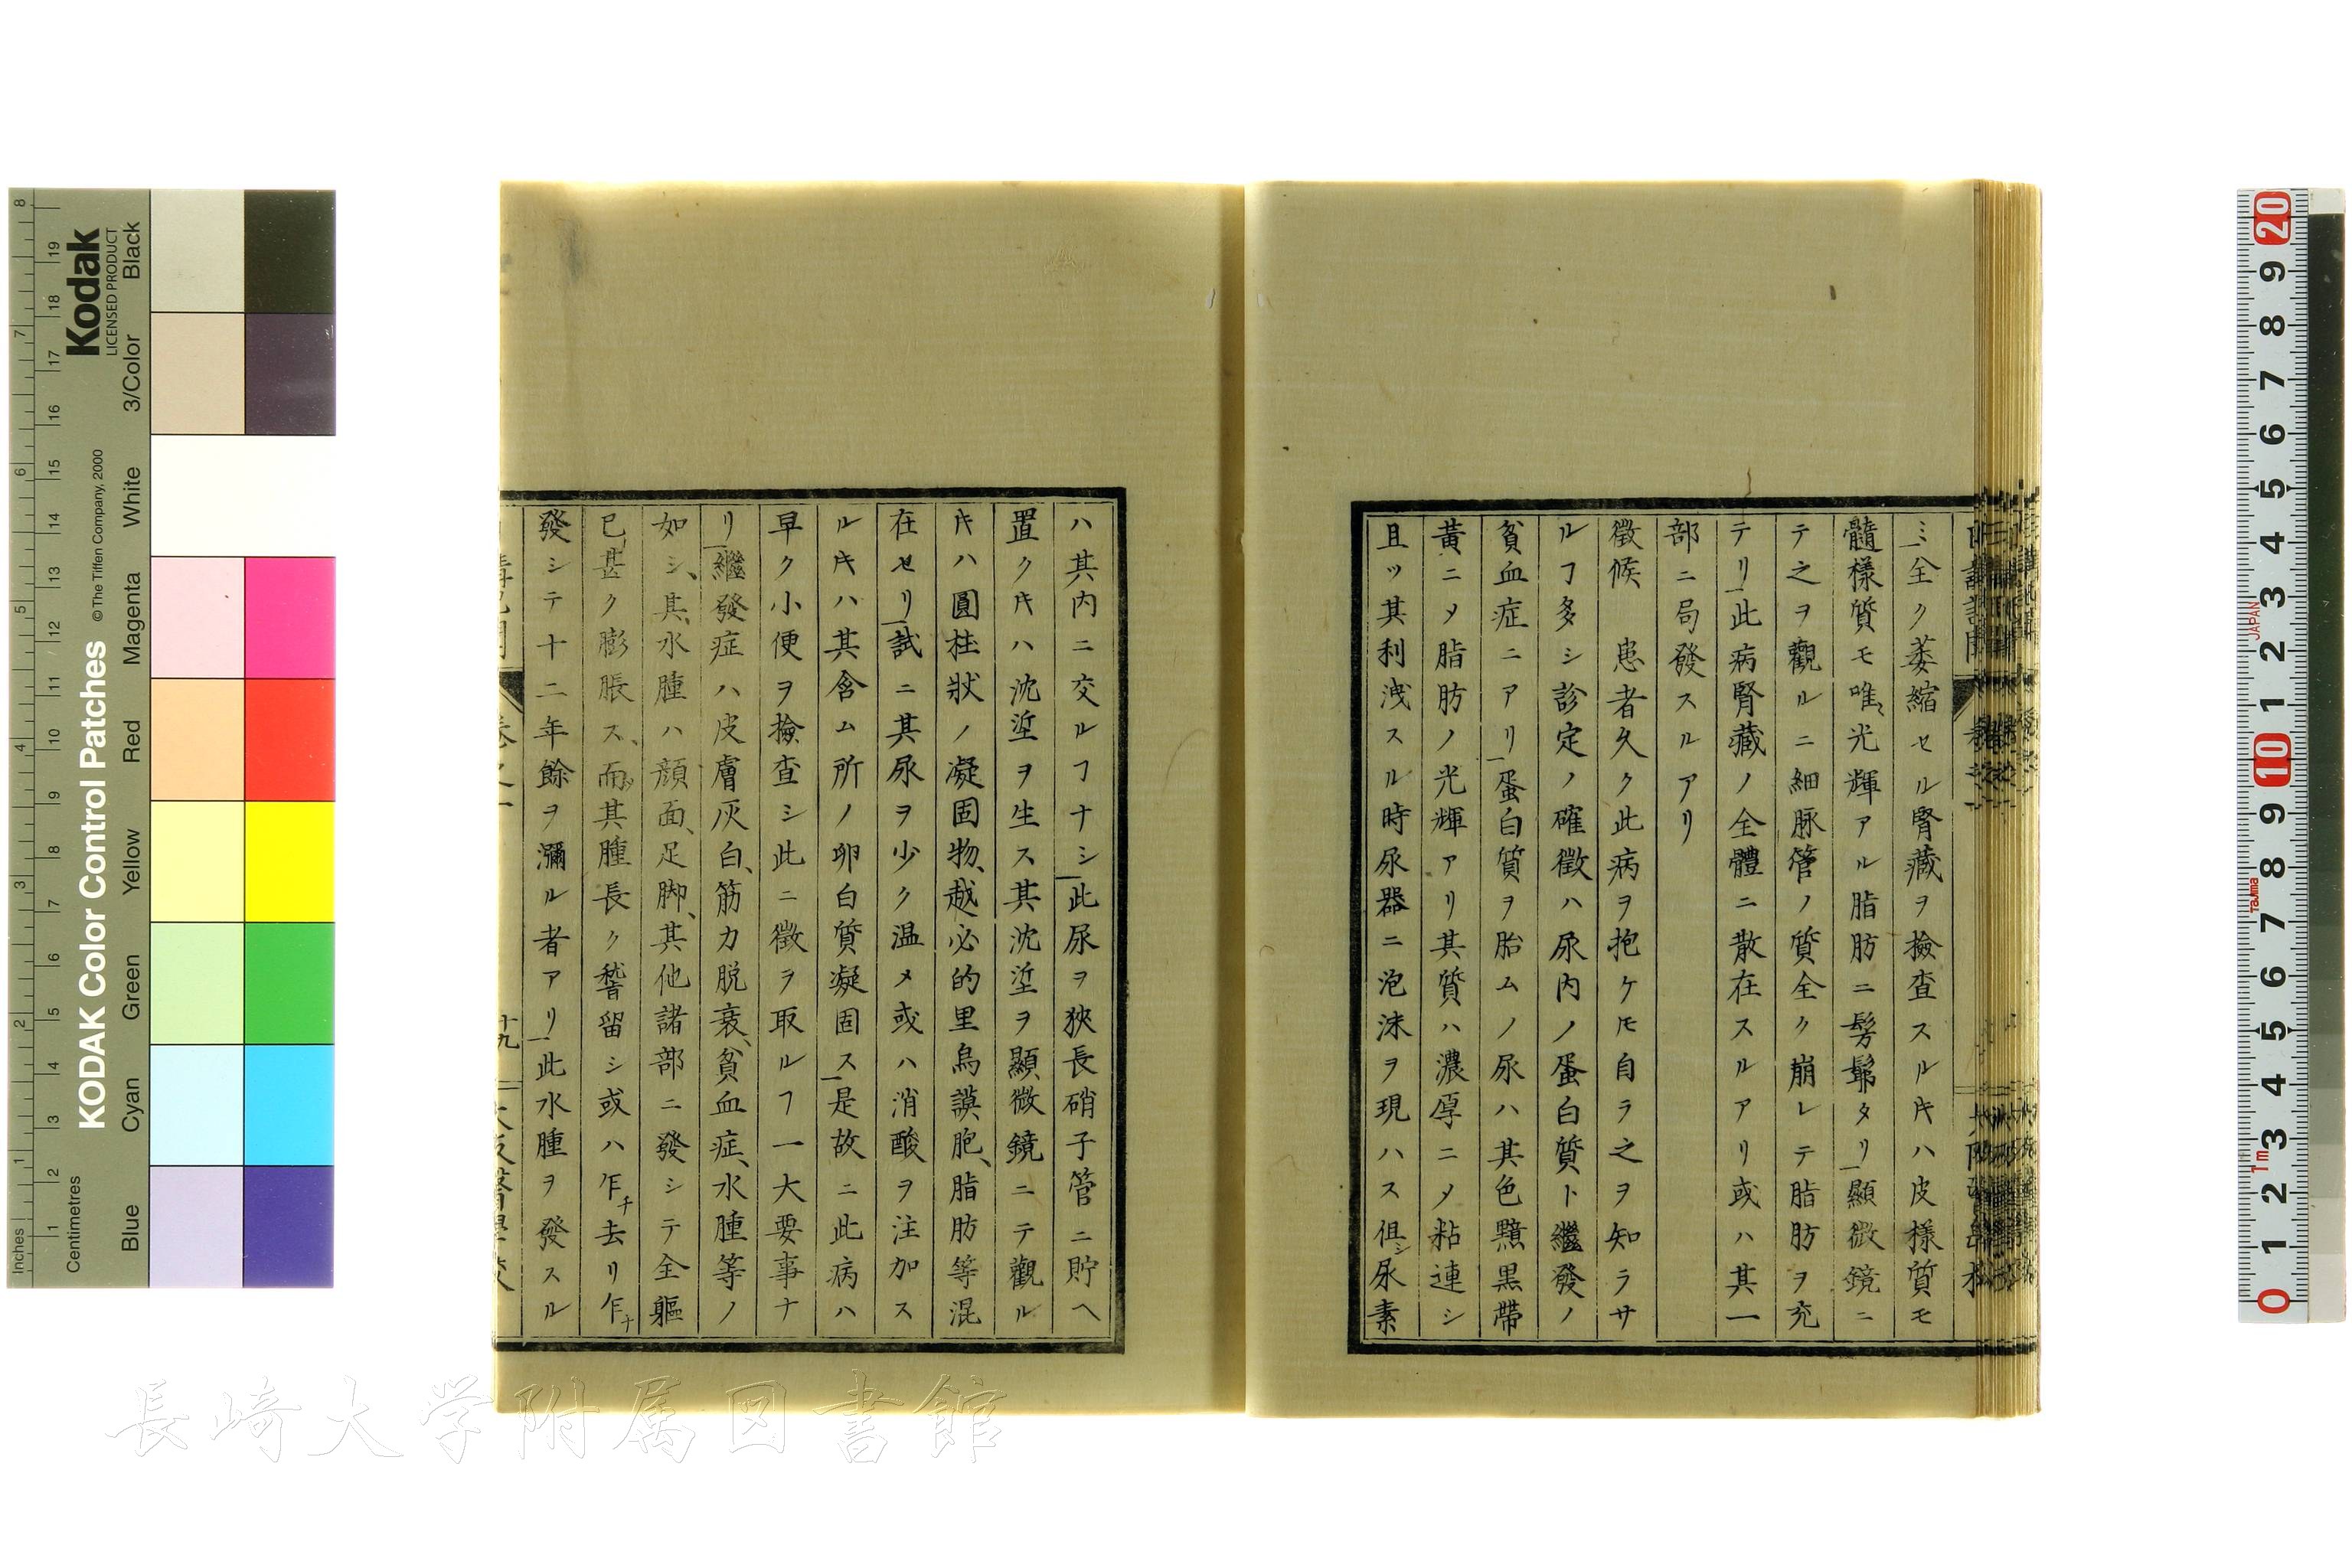 ミ全ク萎縮セル腎藏ヲ撿査スルキハ皮樣質モ
髓樣質モ唯〻光輝アル脂肪ニ髣髴タリ顯微鏡ニ
テ之ヲ觀ルニ細脉管ノ質全ク崩レテ脂肪ヲ充
テリ此病腎藏ノ全體ニ散在スルアリ或ハ其一
部ニ局發スルアリ
徵候　患者久ク此病ヲ抱ケ𪜈自ラ之ヲ知ラサ
ルヿ多シ診定ノ確徵ハ尿内ノ蛋白質ト繼發ノ
貧血症ニアリ蛋白質ヲ胎ムノ尿ハ其色黯黒帶
黃ニメ脂肪ノ光輝アリ其質ハ濃厚ニメ粘連シ
且ツ其利洩スル時尿器ニ泡沫ヲ現ハス但シ尿素
ハ其内ニ交ルヿナシ此尿ヲ狹長硝子管ニ貯ヘ
置クキハ沈垽ヲ生ス其沈垽ヲ顯微鏡ニテ觀ル
キハ圓柱狀ノ凝固物、越必的里烏謨胞、脂肪等混
在セリ試ニ其尿ヲ少ク温メ或ハ消酸ヲ注加ス
ルキハ其含ム所ノ卵白質凝固ス是故ニ此病ハ
早ク小便ヲ撿査シ此ニ徵ヲ取ルヿ一大要事ナ
リ繼發症ハ皮膚灰白、筋力脱衰、貧血症、水腫等ノ
如シ、其水腫ハ顔面、足脚、其他諸部ニ發シテ全軀
已甚ク膨脹ス、而其腫長ク稽留シ或ハ乍チ去リ乍ナ
發シテ十二年餘ヲ瀰ル者アリ此水腫ヲ發スル
十九
長崎大学附属図書館
Kodak
LICENSED PRODUCT
KODAK Color Control Patches
© The Tiffen Company, 2000
Inches
Centimetres
Blue
Cyan
Green
Yellow
Red
Magenta
White
3/Color
Black
JAPAN
Tajima
1m